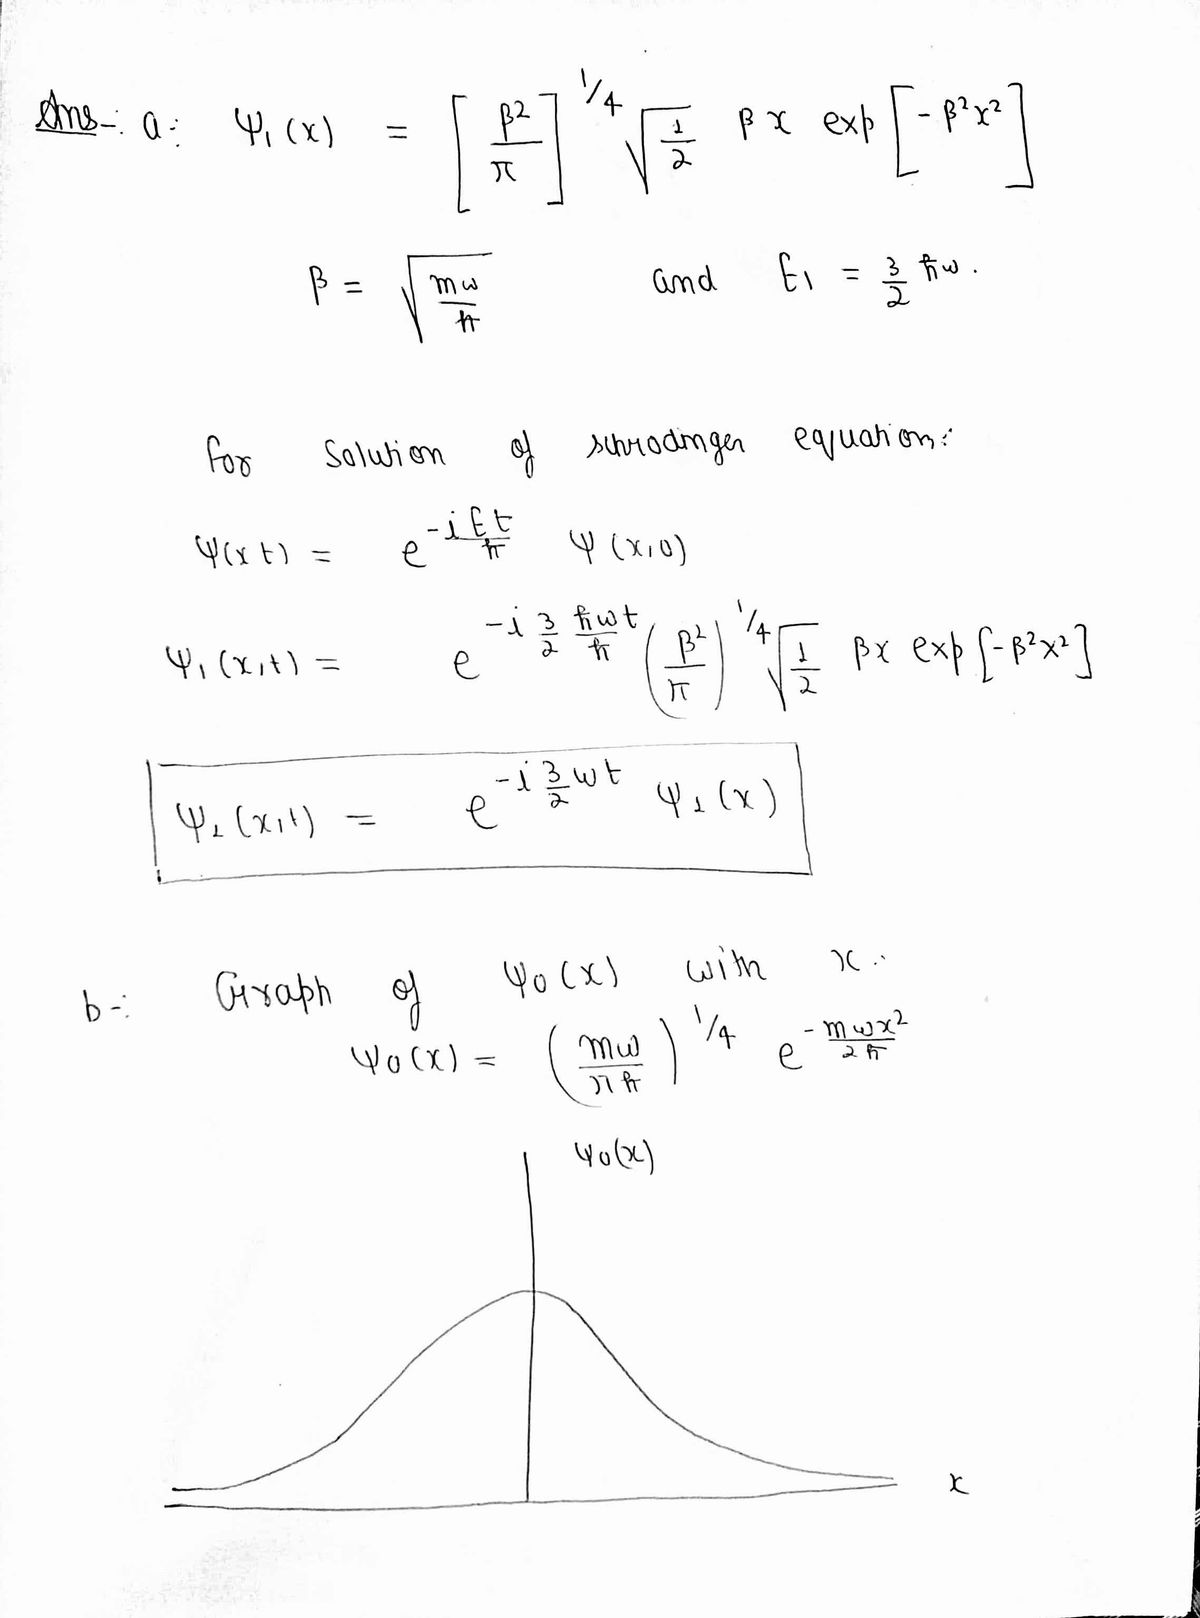 Ans-: a: Ψ₁(x) = [β²/π]^1/4 √(1/2) βx exp[-β²x²]
β = √(mω/ħ) and E₁ = 3/2 ħω.
for solution of schrodinger equation:
Ψ(x t) = e^(-iEt/ħ) Ψ(x,0)
Ψ₁(x,t) = e^(-i 3/2 ħωt/ħ) (β²/π)^1/4 √(1/2) βx exp[-β²x²]
Ψ₁(x,t) = e^(-i 3/2 ωt) Ψ₁(x)
b-: Graph of Ψ₀(x) with x..
Ψ₀(x) = (mω/πħ)^1/4 e^(-mωx²/2ħ)
Ψ₀(x)
x